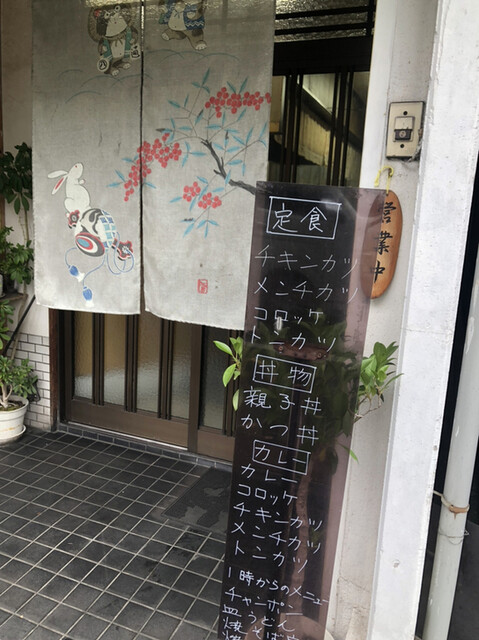 営業中
定食
チキンカツ
メンチカツ
コロッケ
トンカツ
丼物
親子丼
かつ丼
カレー
カレー
コロッケ
チキンカツ
メンチカツ
トンカツ
1時からのメニュー
チャンポン
皿うどん
焼そば